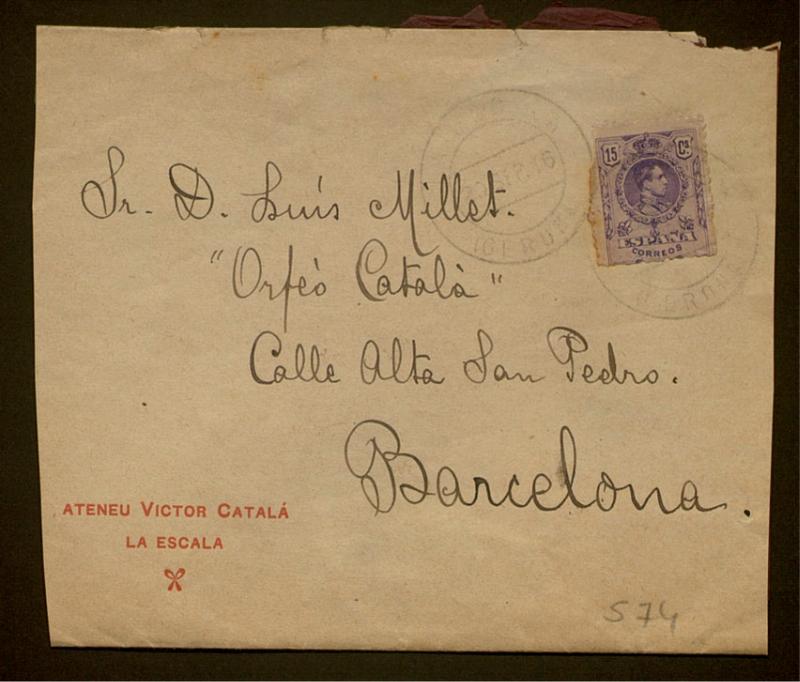 15 Cs
ESPAÑA
CORREOS
(GERONA)
GERONA
Sr. D. Luís Millet.
"Orfeó Català"
Calle Alta San Pedro.
Barcelona.
ATENEU VICTOR CATALÁ
LA ESCALA
574